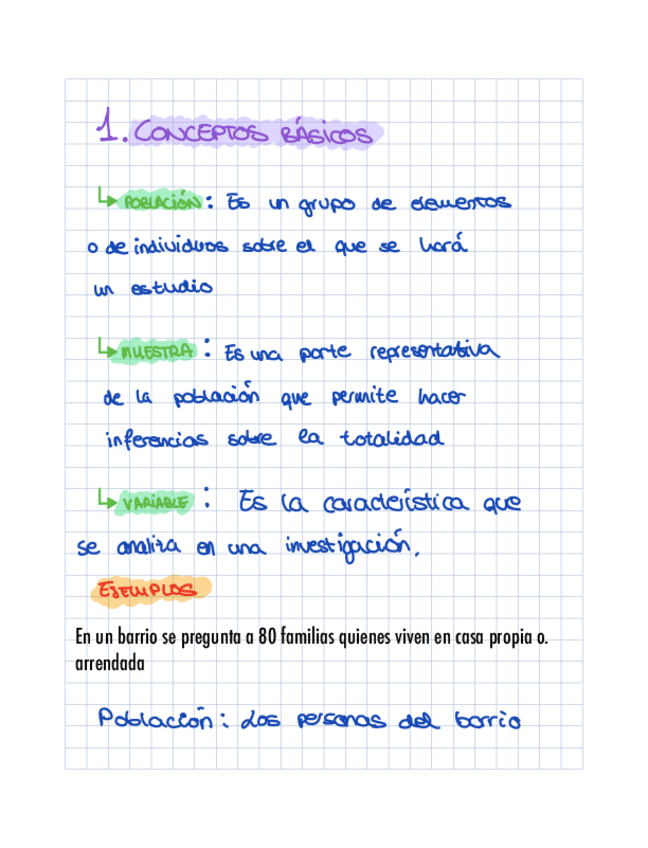 1. CONCEPTOS BÁSICOS
POBLACIÓN: Es un grupo de elementos
o de individuos sobre el que se hará
un estudio
MUESTRA: Es una parte representativa
de la población que permite hacer
inferencias sobre la totalidad
VARIABLE: Es la caracteristica que
se analiza en una investigación.
EJEMPLOS
En un barrio se pregunta a 80 familias quienes viven en casa propia o.
arrendada
Población: Los personas del barrio